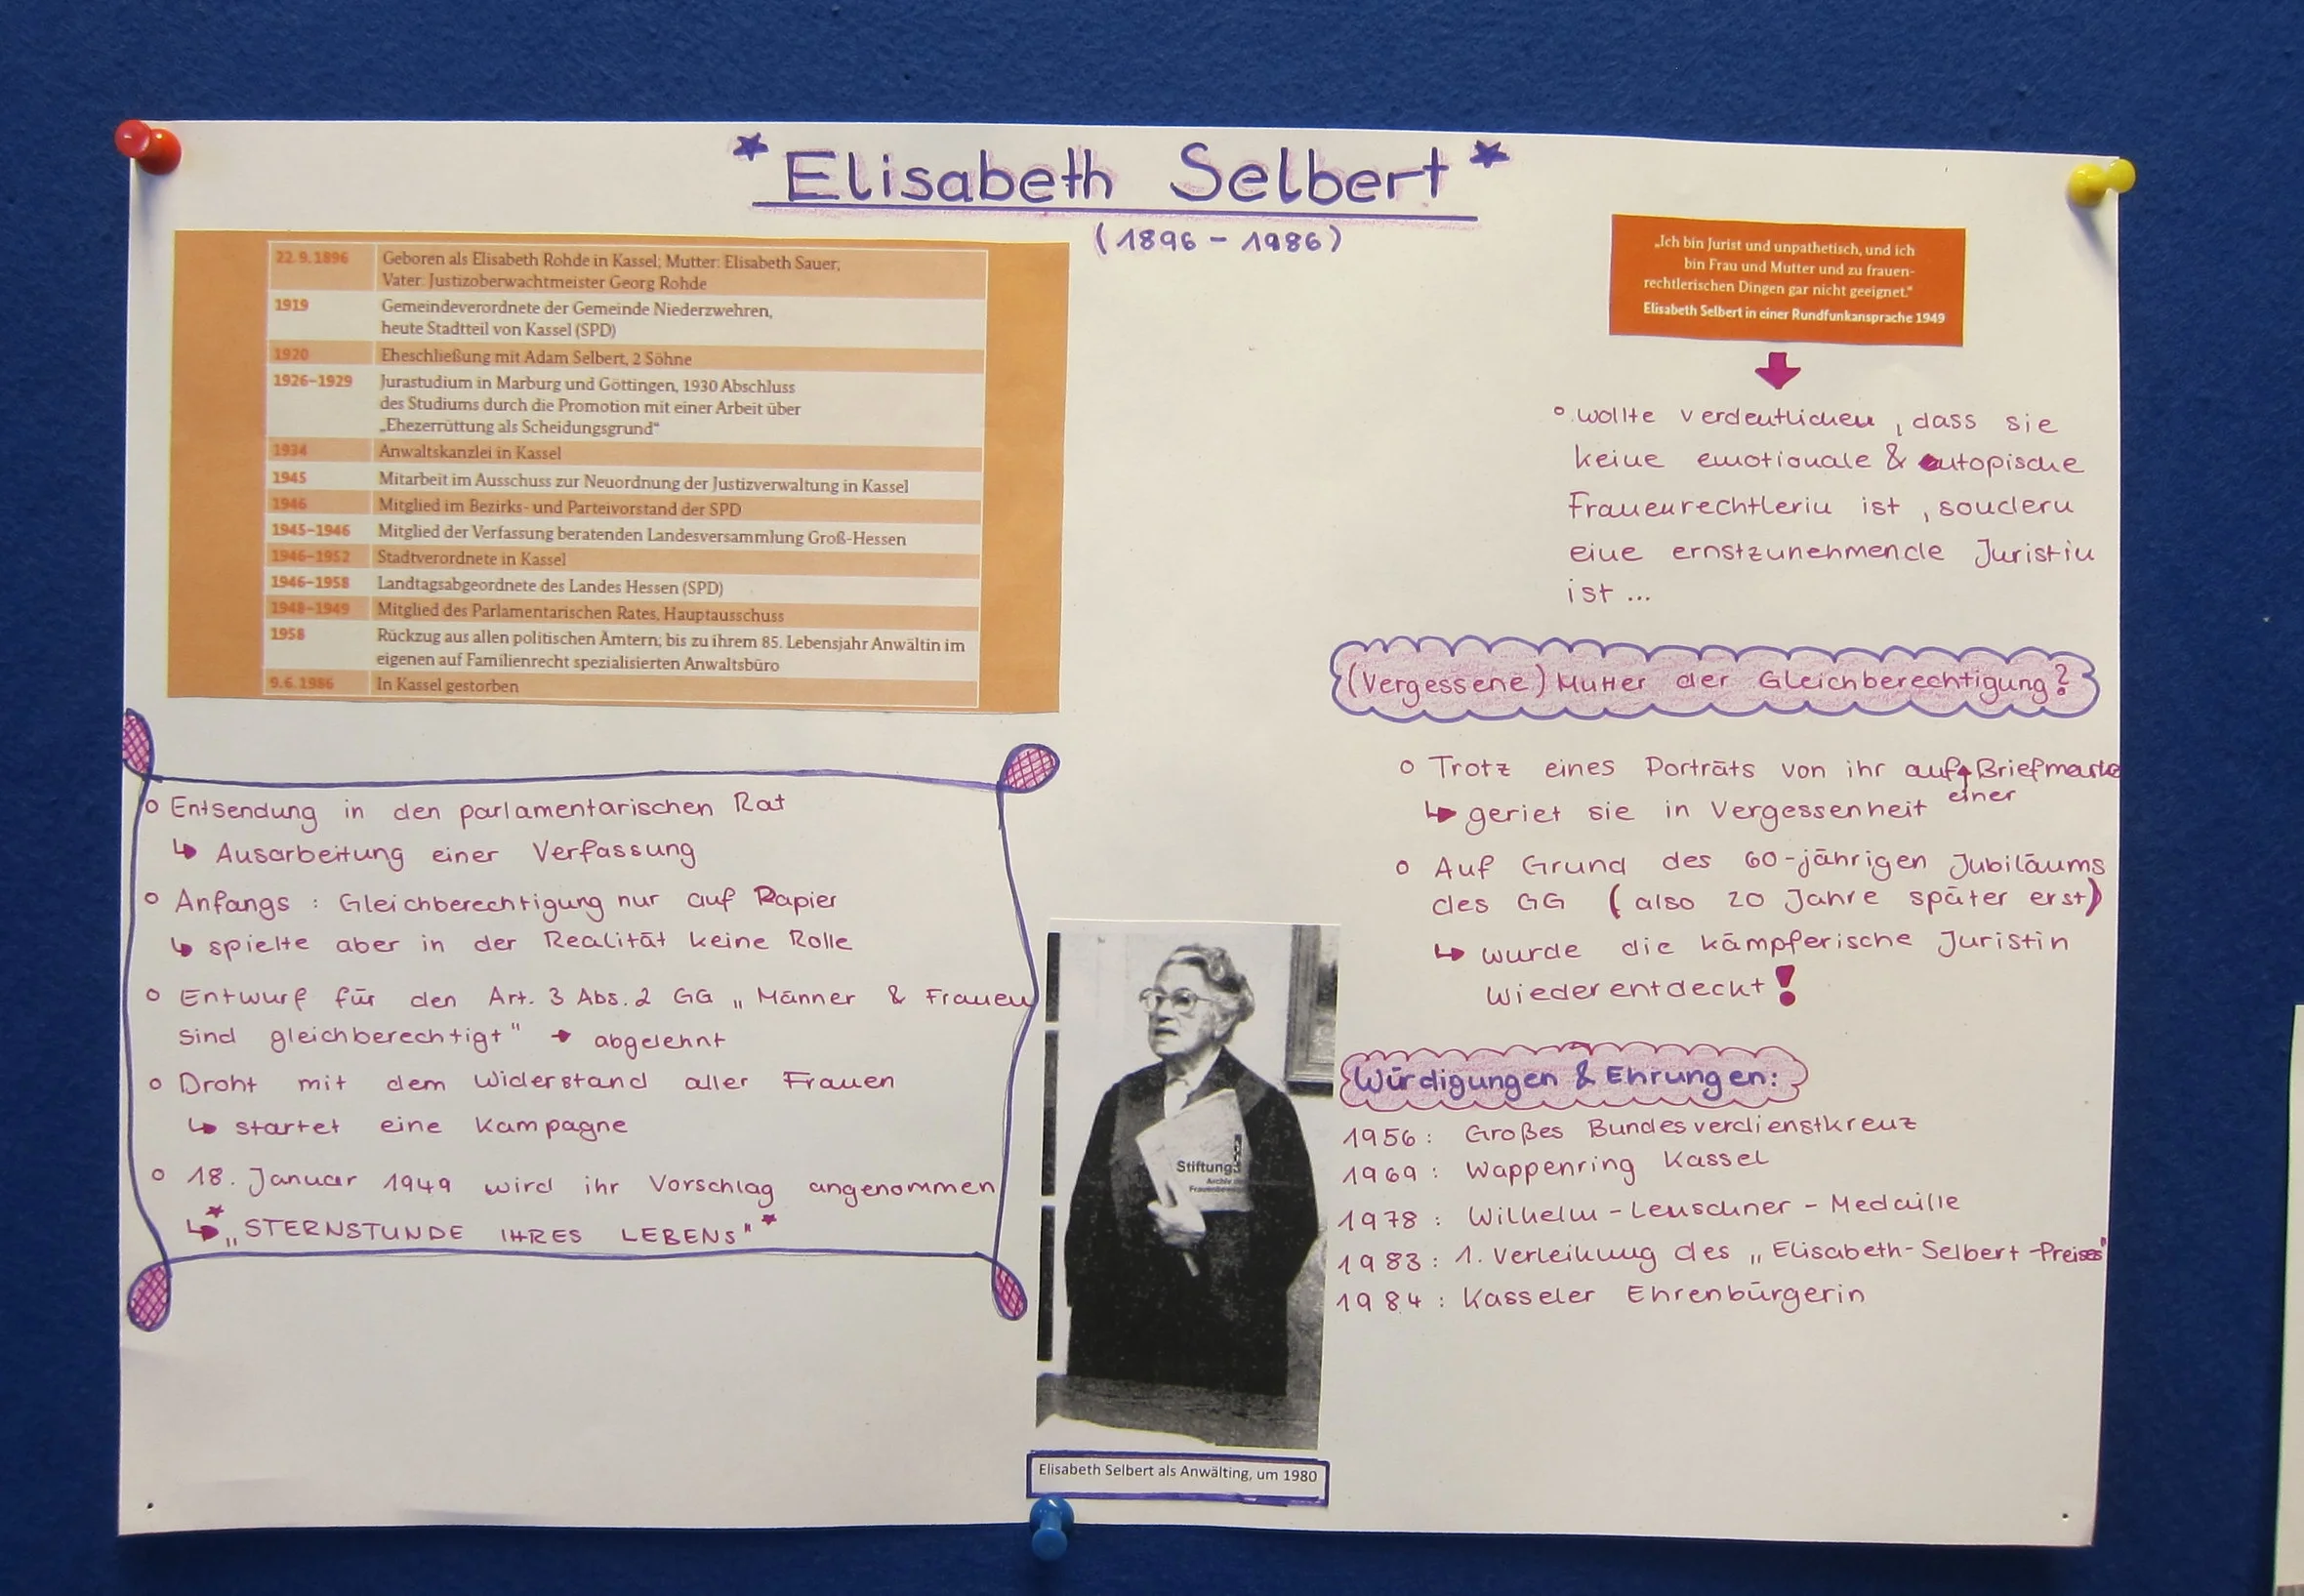 *Elisabeth Selbert*
(1896 - 1986)
22.9.1896 Geboren als Elisabeth Rohde in Kassel; Mutter: Elisabeth Sauer,
Vater: Justizoberwachtmeister Georg Rohde
1919 Gemeindeverordnete der Gemeinde Niederzwehren,
heute Stadtteil von Kassel (SPD)
1920 Eheschließung mit Adam Selbert, 2 Söhne
1926–1929 Jurastudium in Marburg und Göttingen, 1930 Abschluss
des Studiums durch die Promotion mit einer Arbeit über
„Ehezerrüttung als Scheidungsgrund“
1934 Anwaltskanzlei in Kassel
1945 Mitarbeit im Ausschuss zur Neuordnung der Justizverwaltung in Kassel
1946 Mitglied im Bezirks- und Parteivorstand der SPD
1945–1946 Mitglied der Verfassung beratenden Landesversammlung Groß-Hessen
1946–1952 Stadtverordnete in Kassel
1946–1958 Landtagsabgeordnete des Landes Hessen (SPD)
1948–1949 Mitglied des Parlamentarischen Rates, Hauptausschuss
1958 Rückzug aus allen politischen Ämtern; bis zu ihrem 85. Lebensjahr Anwältin im
eigenen auf Familienrecht spezialisierten Anwaltsbüro
9.6.1986 In Kassel gestorben
o Entsendung in den parlamentarischen Rat
↳ Ausarbeitung einer Verfassung
o Anfangs : Gleichberechtigung nur auf Papier
↳ spielte aber in der Realität keine Rolle
o Entwurf für den Art. 3 Abs. 2 GG „Männer & Frauen
sind gleichberechtigt" → abgelehnt
o Droht mit dem Widerstand aller Frauen
↳ startet eine Kampagne
o 18. Januar 1949 wird ihr Vorschlag angenommen
↳ *„STERNSTUNDE IHRES LEBENS"*
„Ich bin Jurist und unpathetisch, und ich
bin Frau und Mutter und zu frauen-
rechtlerischen Dingen gar nicht geeignet.“
Elisabeth Selbert in einer Rundfunkansprache 1949
o wollte verdeutlichen, dass sie
keine emotionale & utopische
Frauenrechtlerin ist, sondern
eine ernstzunehmende Juristin
ist ...
(Vergessene) Mutter der Gleichberechtigung?
o Trotz eines Porträts von ihr auf einer Briefmarke
↳ geriet sie in Vergessenheit
o Auf Grund des 60-jährigen Jubiläums
des GG (also 20 Jahre später erst)
↳ wurde die kämpferische Juristin
wiederentdeckt!
Würdigungen & Ehrungen:
1956: Großes Bundesverdienstkreuz
1969: Wappenring Kassel
1978: Wilhelm-Leuschner-Medaille
1983: 1. Verleihung des „Elisabeth-Selbert-Preises"
1984: Kasseler Ehrenbürgerin
Stiftung
Archiv
Elisabeth Selbert als Anwälting, um 1980